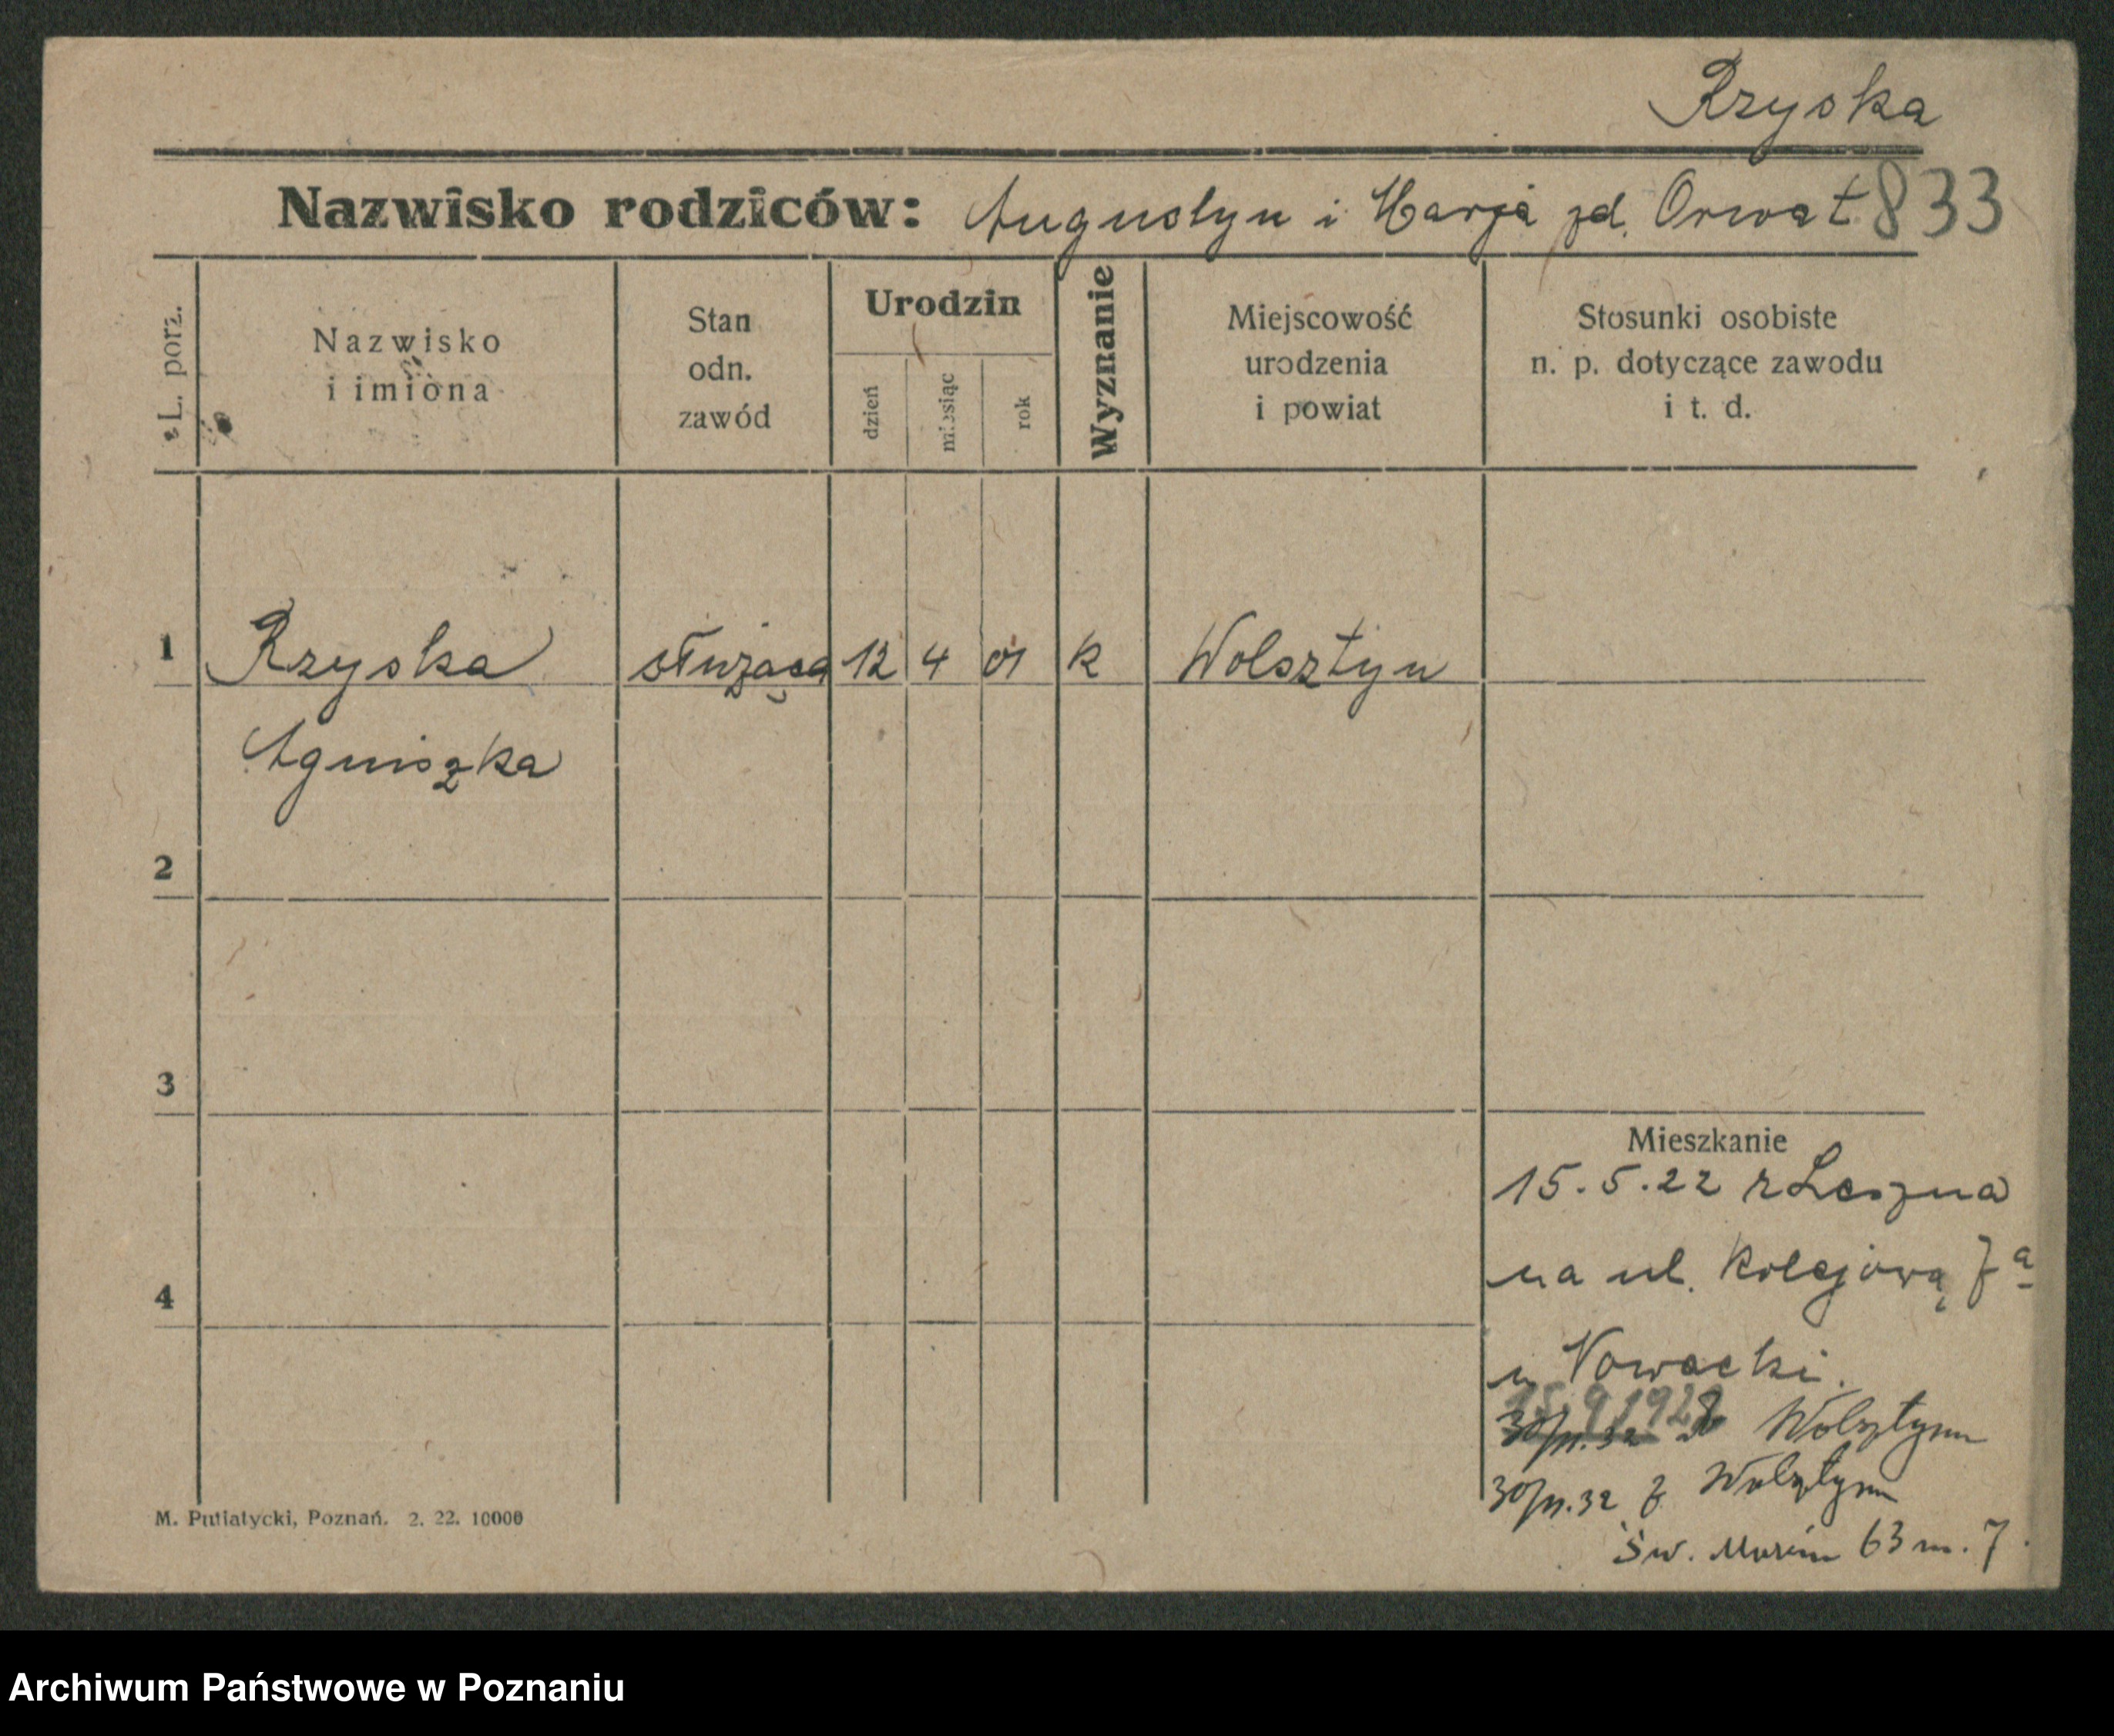 Rzyska
Nazwisko rodziców: Augustyn i Marja zd. Orwat 833
L. porz.
Nazwisko
i imiona
Stan
odn.
zawód
Urodzin
dzień
miesiąc
rok
Wyznanie
Miejscowość
urodzenia
i powiat
Stosunki osobiste
n. p. dotyczące zawodu
i t. d.
1 Rzyska służąca 12 4 01 k Wolsztyn
Agniszka
2
3
4
Mieszkanie
15.5.22 z Leszna
na ul. Kolejową 7a
u Nowacki.
15.9.1922
30/11.32 Wolsztyn
30/11.32 z Wolsztyn
Św. Marcin 63 m. 7.
M. Putiatycki, Poznań. 2. 22. 10000
Archiwum Państwowe w Poznaniu